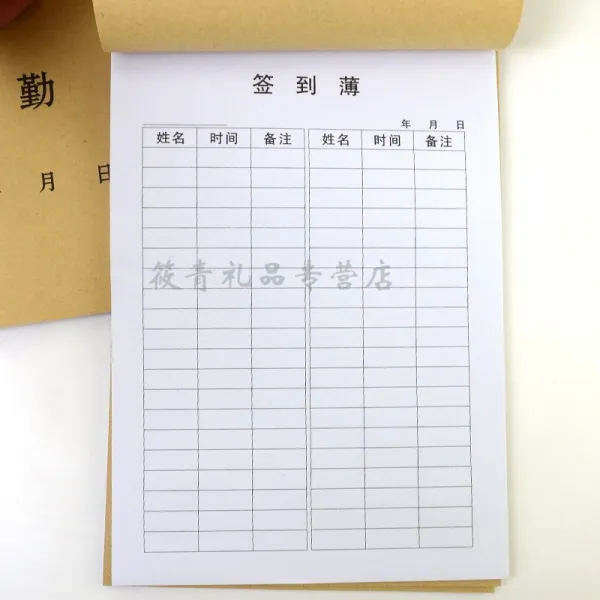 勤
月 日
签到薄
年 月 日
姓名 时间 备注 姓名 时间 备注
筱青礼品专营店